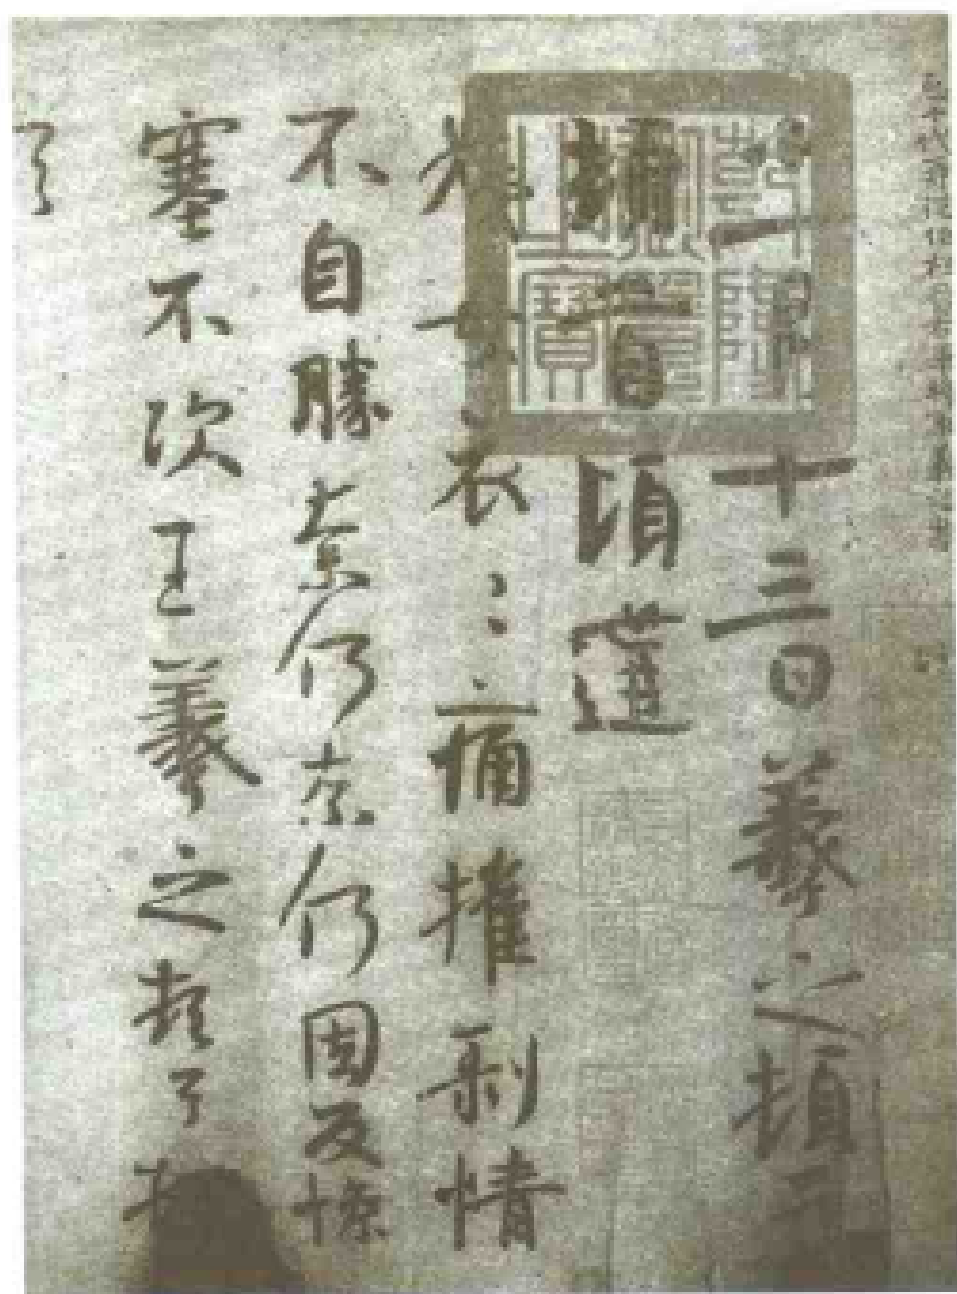 一月十三日羲之頓首
頓首頃遘
姨母哀〻痛摧剝情
不自勝奈何奈何因反慘
塞不次王羲之頓首頓
首
乾隆御覽之寶